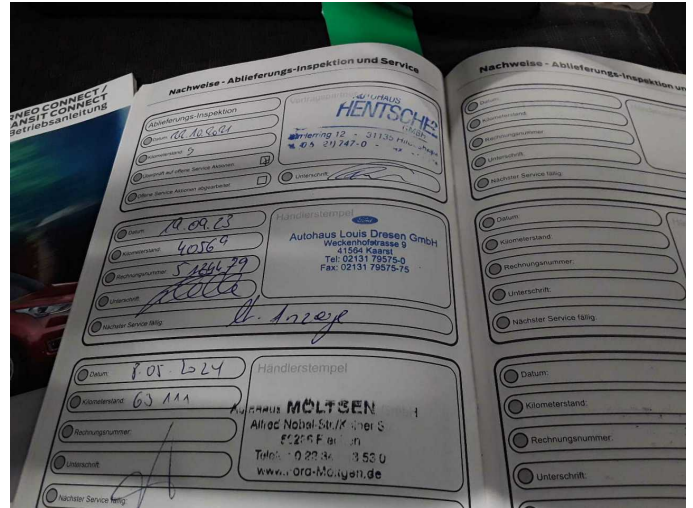 RNEO CONNECT /
ANSIT CONNECT
Betriebsanleitung
Nachweise - Ablieferungs-Inspektion und Service
Ablieferungs-Inspektion
Datum:
Kilometerstand: 5
Überprüft auf offene Service Aktionen
Offene Service Aktionen abgearbeitet
AUTOHAUS
HENTSCHE
GmbH
ring 12 - 31135
747-0
Unterschrift:
Datum: 19.09.23
Kilometerstand: 40569
Rechnungsnummer:
Unterschrift:
Nächster Service fällig: lt. Anzeige
Händlerstempel
Ford
Autohaus Louis Dresen GmbH
Weckenhofstrasse 9
41564 Kaarst
Tel: 02131 79575-0
Fax: 02131 79575-75
Datum: 8.05.2024
Kilometerstand: 63 111
Rechnungsnummer:
Unterschrift:
Nächster Service fällig:
Händlerstempel
MÖLTGEN
Alfred Nobel-Str./
Nachweise - Ablieferungs-Inspektion un
Datum:
Kilometerstand:
Rechnungsnummer:
Unterschrift:
Nächster Service fällig:
Datum:
Kilometerstand:
Rechnungsnummer:
Unterschrift:
Nächster Service fällig:
Datum:
Kilometerstand:
Rechnungsnummer:
Unterschrift: